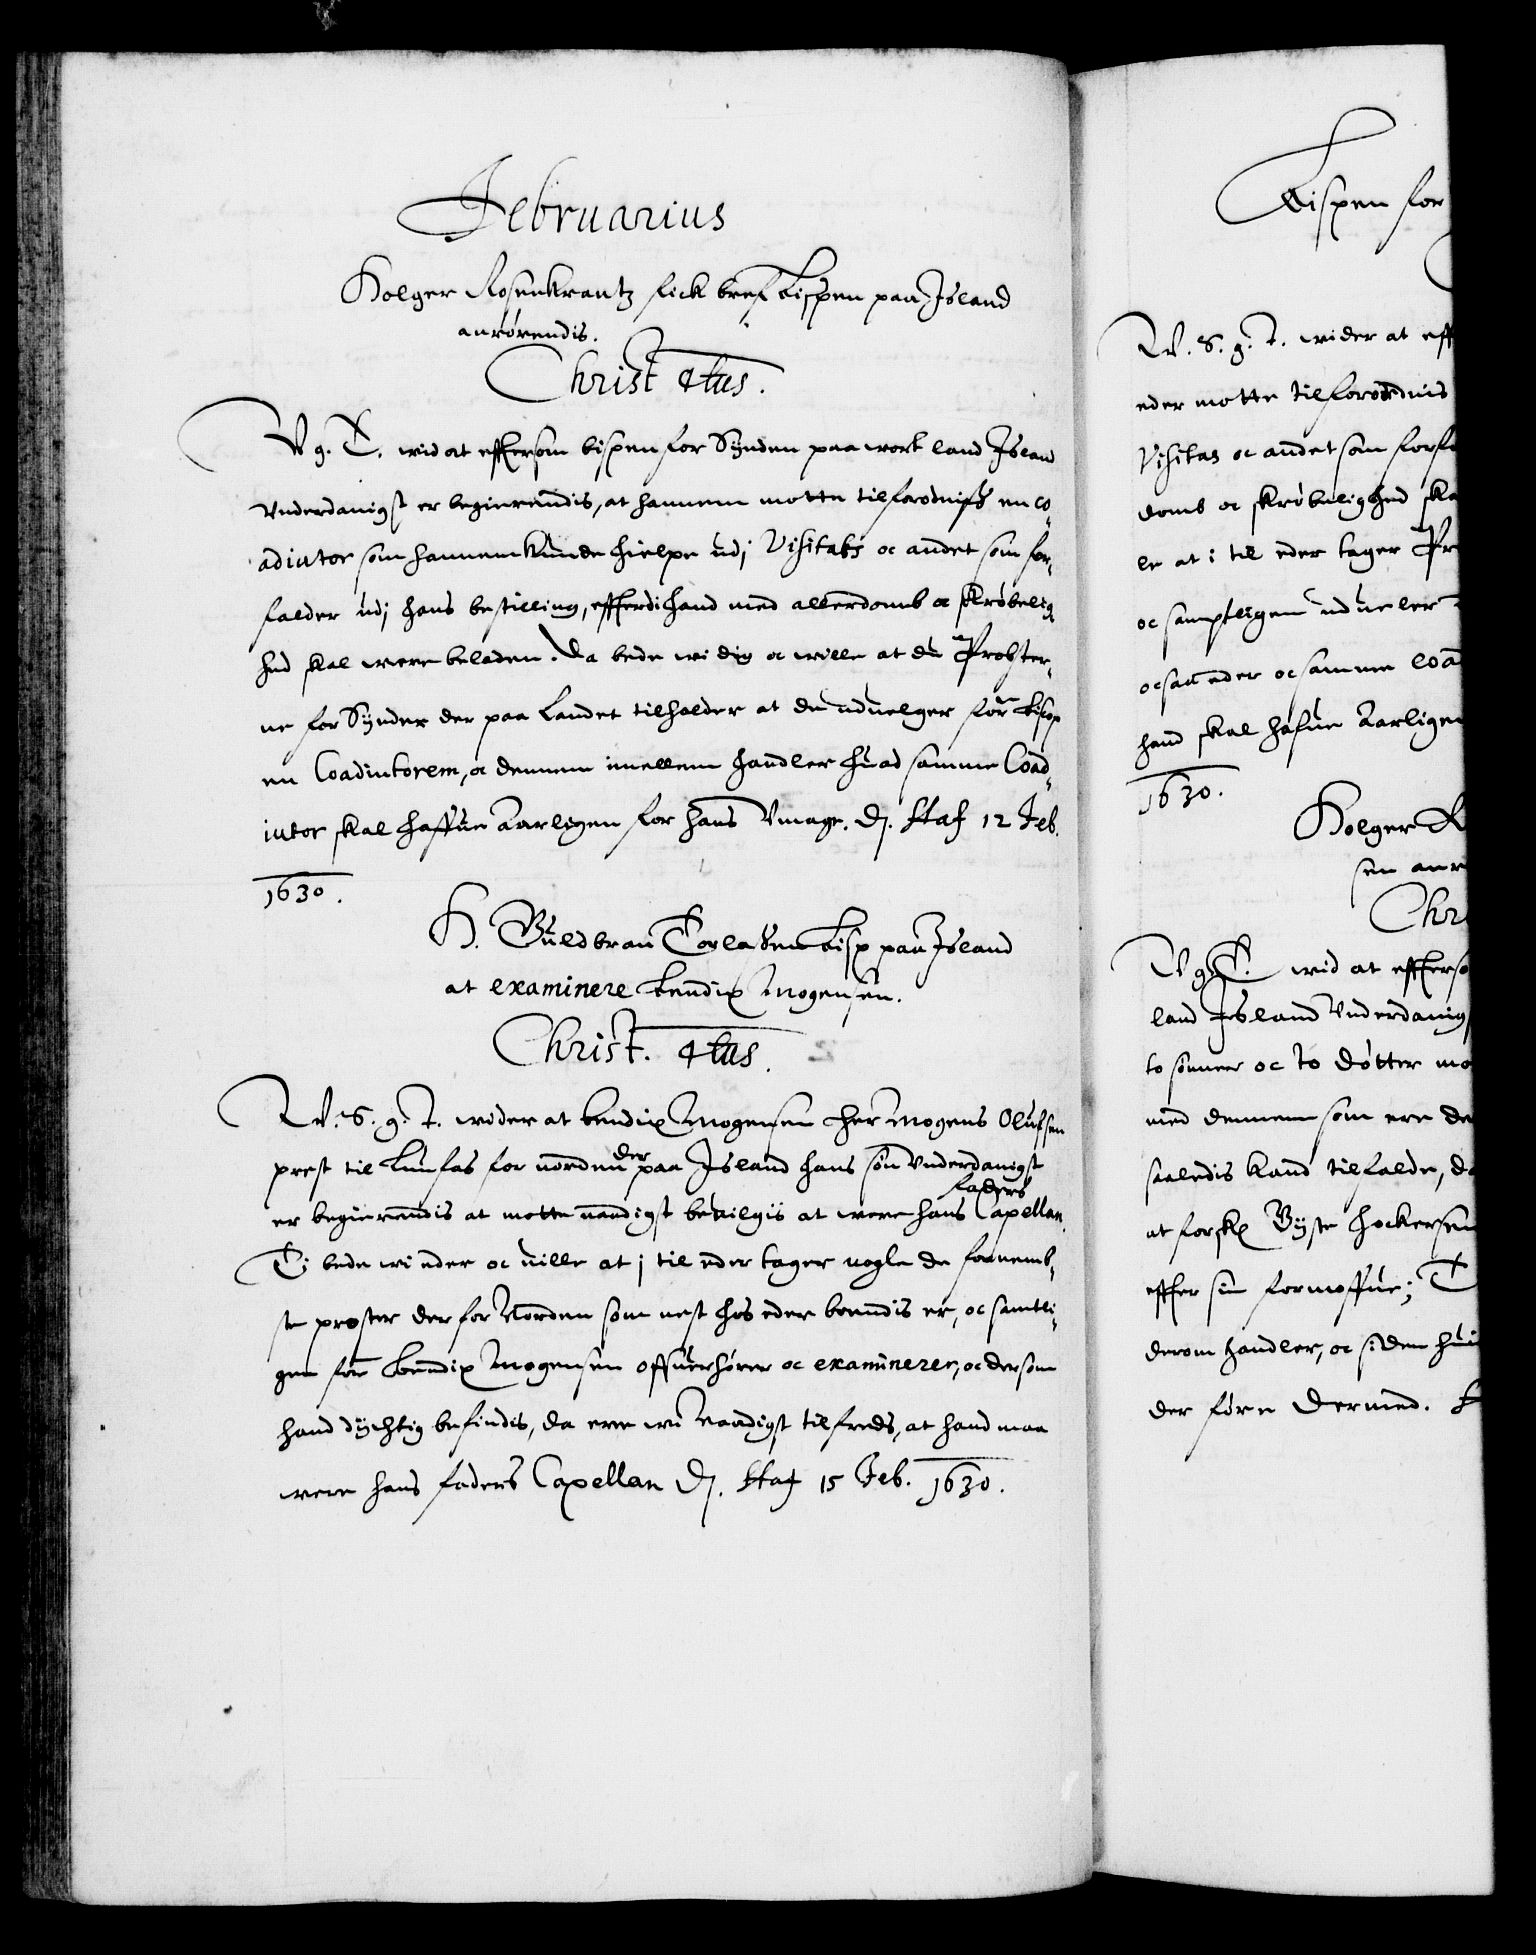 Februarius
Holger Rosenkrantz fick bref Bispen paa Jsland
anrørendis.
Christ 4tus.
W g. T. wid at effersom bispen for Synden paa wort land Jsland
Vnderdanigst er begierendis, at hannem motte tilforordnis en co¬
adiutor som hannem kunde hielpe udj Visitats oc andet som for¬
falder udj hans bestilling, efferdi hand med allerdomb oc skrøbelig
hed skal were beladen. Da bede wi dig oc wille at du Profster¬
ne for Synder der paa Landet tilholder at de uduelger for Bisop
en Coadiutorem, oc dennem imellem handler huad samme Coad¬
iutor skal haffue Aarligen for hans Vmage. Dj. Haf 12 Feb.
1630.
H. Guldbran Torlaksen Bisp paa Jsland
at examinere Bendix Mogensen.
Christ. 4tus.
W. S. g. T. wider at Bendix Mogensen Her Mogens Olufsen
prest til Lunfas for norden der paa Jsland hans søn Vnderdanigst
er begierendis at motte naadigst beuilgis at were hans faders Capellan.
Ti bede wi eder oc uille at j til eder tager nogle de fornemb¬
ste prester der for Norden som nest hos eder boendis er, oc samtli¬
gen forne Bendix Mogensen offuerhører oc examinerer, oc dersom
hand dychtig befindis, da ere wi Naadigst tilfreds, at hand maa
were hans faders Capellan Dj. Haf 15 Feb. 1630.
Bispen for
W. S. g. T. wider at eff
eder motte tilforordnis
Visitas oc andet som forfa
domb oc skrøbelighed ska
le at i til eder tager Pr
oc samptligen uduelger
ocsaa eder oc samme Coa
hand skal hafue Aarligen
1630.
Holger R
sen anr
Chri
W g. T. wid at efferso
land Jsland Vnderdanigs
to sønner oc to Døtter mo
med dennem som ere de
saaledis kand tilfalde, da
at forskr Gyste Hockersen
effer sin formoffue; T
derom handler, oc siden hui
der føre dermed.